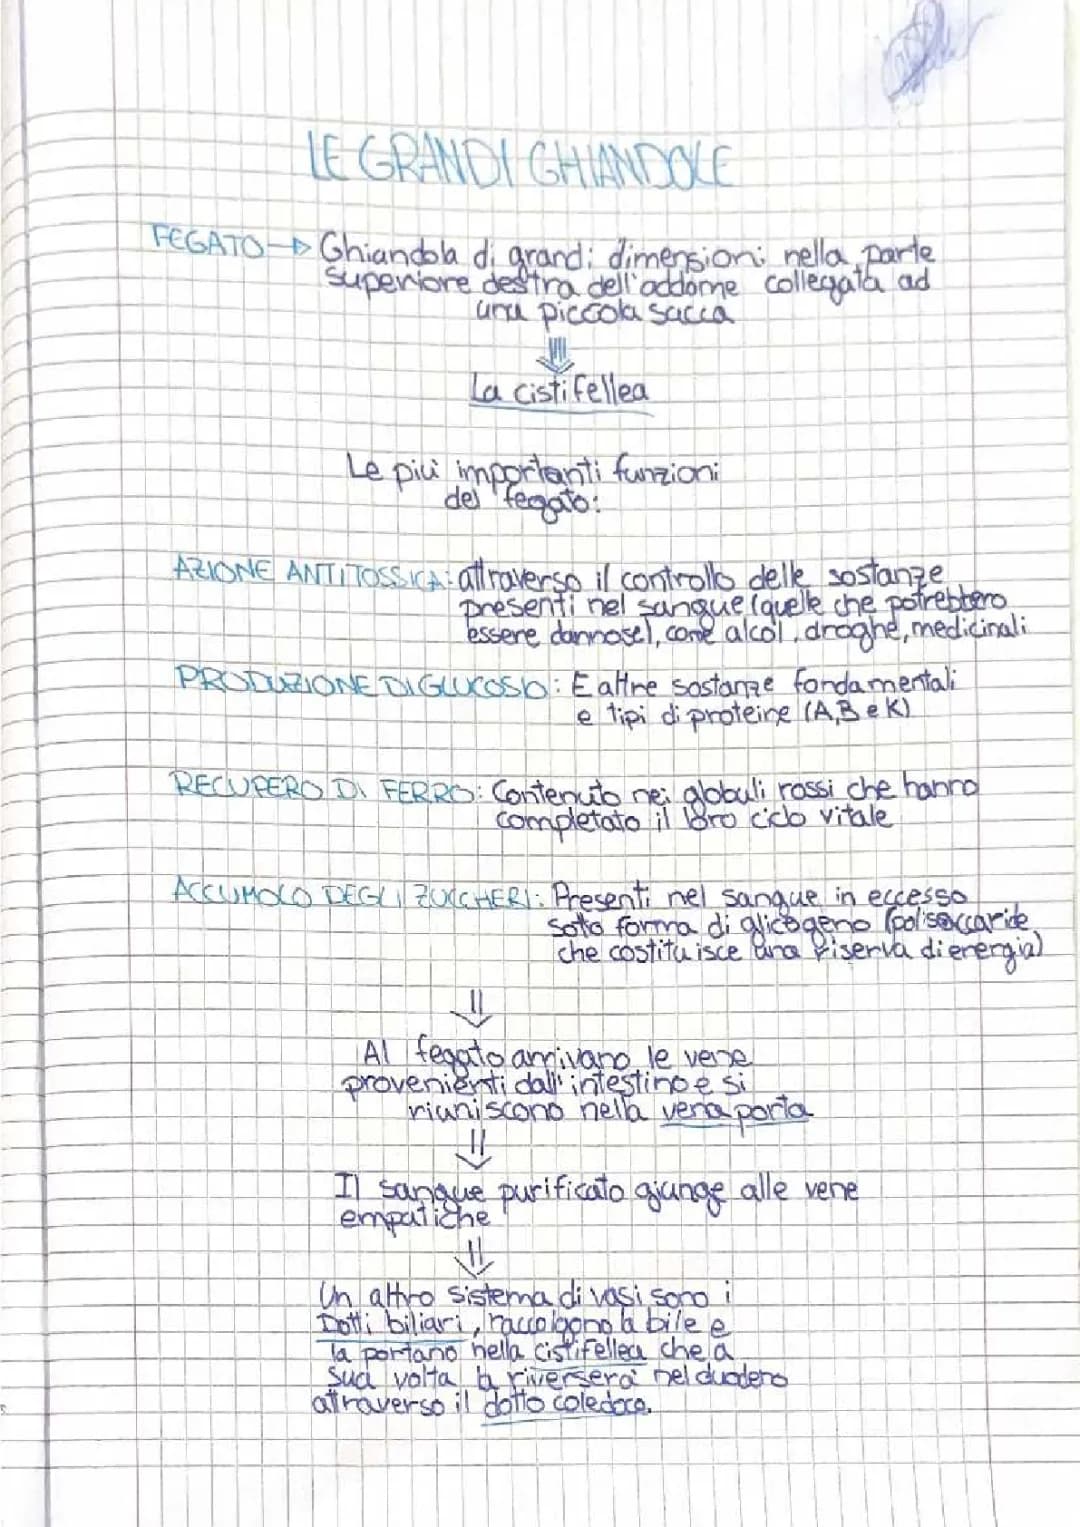 LE GRANDI GHIANDOLE
FEGATO → Ghiandola di grandi dimensioni nella parte
superiore destra dell'addome collegata ad
una piccola sacca
⇓
La cistifellea
Le più importanti funzioni
del fegato:
AZIONE ANTITOSSICA: attraverso il controllo delle sostanze
presenti nel sangue (quelle che potrebbero
essere dannose), come alcol, droghe, medicinali
PRODUZIONE DI GLUCOSIO: E altre sostanze fondamentali
e tipi di proteine (A, B e K)
RECUPERO DI FERRO: Contenuto nei globuli rossi che hanno
completato il loro ciclo vitale
ACCUMOLO DEGLI ZUCCHERI: Presenti nel sangue in eccesso
sotto forma di glicogeno (polisaccaride
che costituisce una riserva di energia)
⇓
Al fegato arrivano le vene
provenienti dall'intestino e si
riuniscono nella vena porta
⇓
Il sangue purificato giunge alle vene
empatiche
⇓
Un altro sistema di vasi sono i
Dotti biliari, raccolgono la bile e
la portano nella cistifellea che a
sua volta la riverserà nel duodeno
attraverso il dotto coledoco.